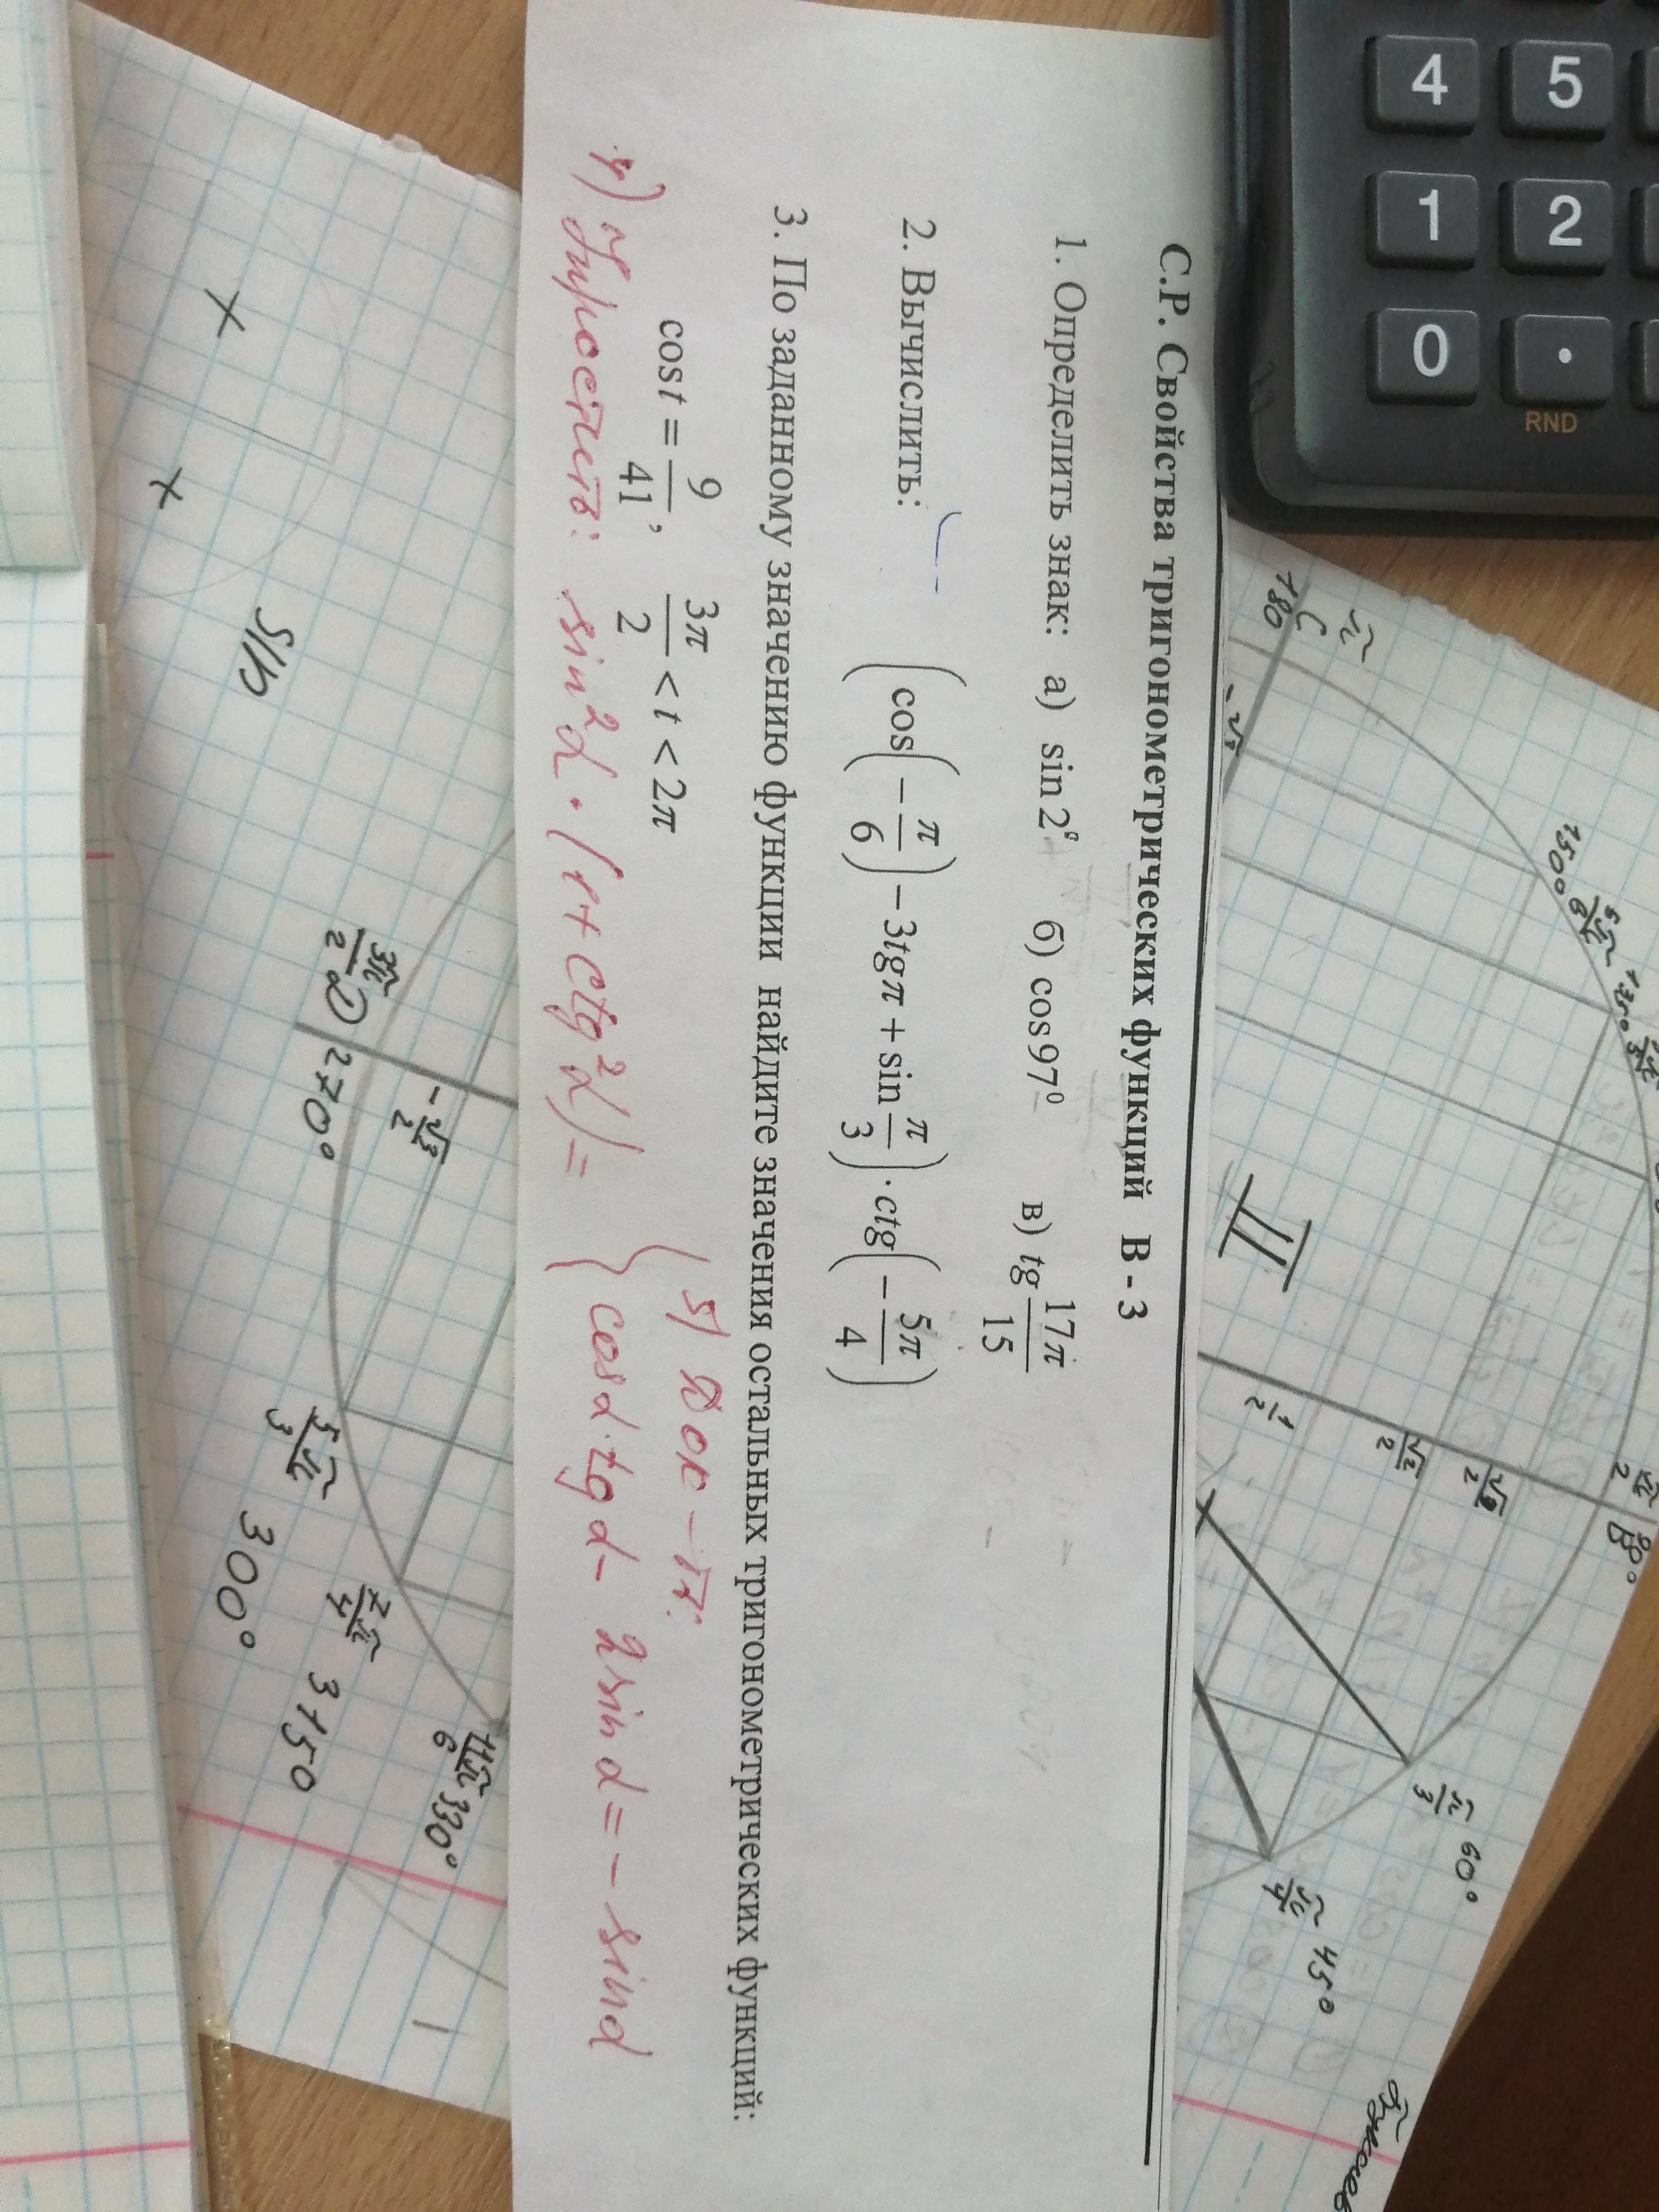 С.Р. Свойства тригонометрических функций В - 3
1. Определить знак: а) sin 2° б) cos 97⁰ в) tg 17π/15
2. Вычислить: (cos(−π/6) − 3tgπ + sin π/3) · ctg(−5π/4)
3. По заданному значению функции найдите значения остальных тригонометрических функций:
cos t = 9/41, 3π/2 < t < 2π
4) Упростить: sin²α · (1 + ctg²α) =
5) Док-ть:
cosα · tgα − 2sinα = − sinα
4 5
1 2
0 .
RND
π C 180
150° 5π/6
135°
II
1/2
√2/2
√3/2
π/2 B 90°
π/3 60°
π/4 45°
sin
3π/2 D 270°
−√3/2
5π/3 300°
7π/4 315°
11π/6 330°